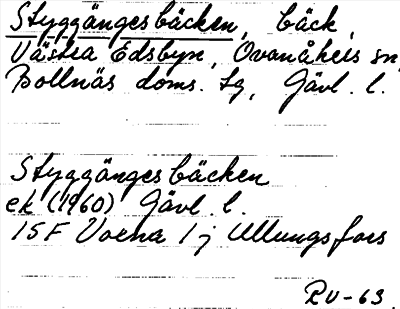 Styggängesbäcken, bäck,
Västra Edsbyn, Ovanåkers sn,
Bollnäs doms. tg, Gävl. l.
Styggängesbäcken
ek (1960) Gävl. l.
15F Voxna 1 j Ullungsfors
RV-63